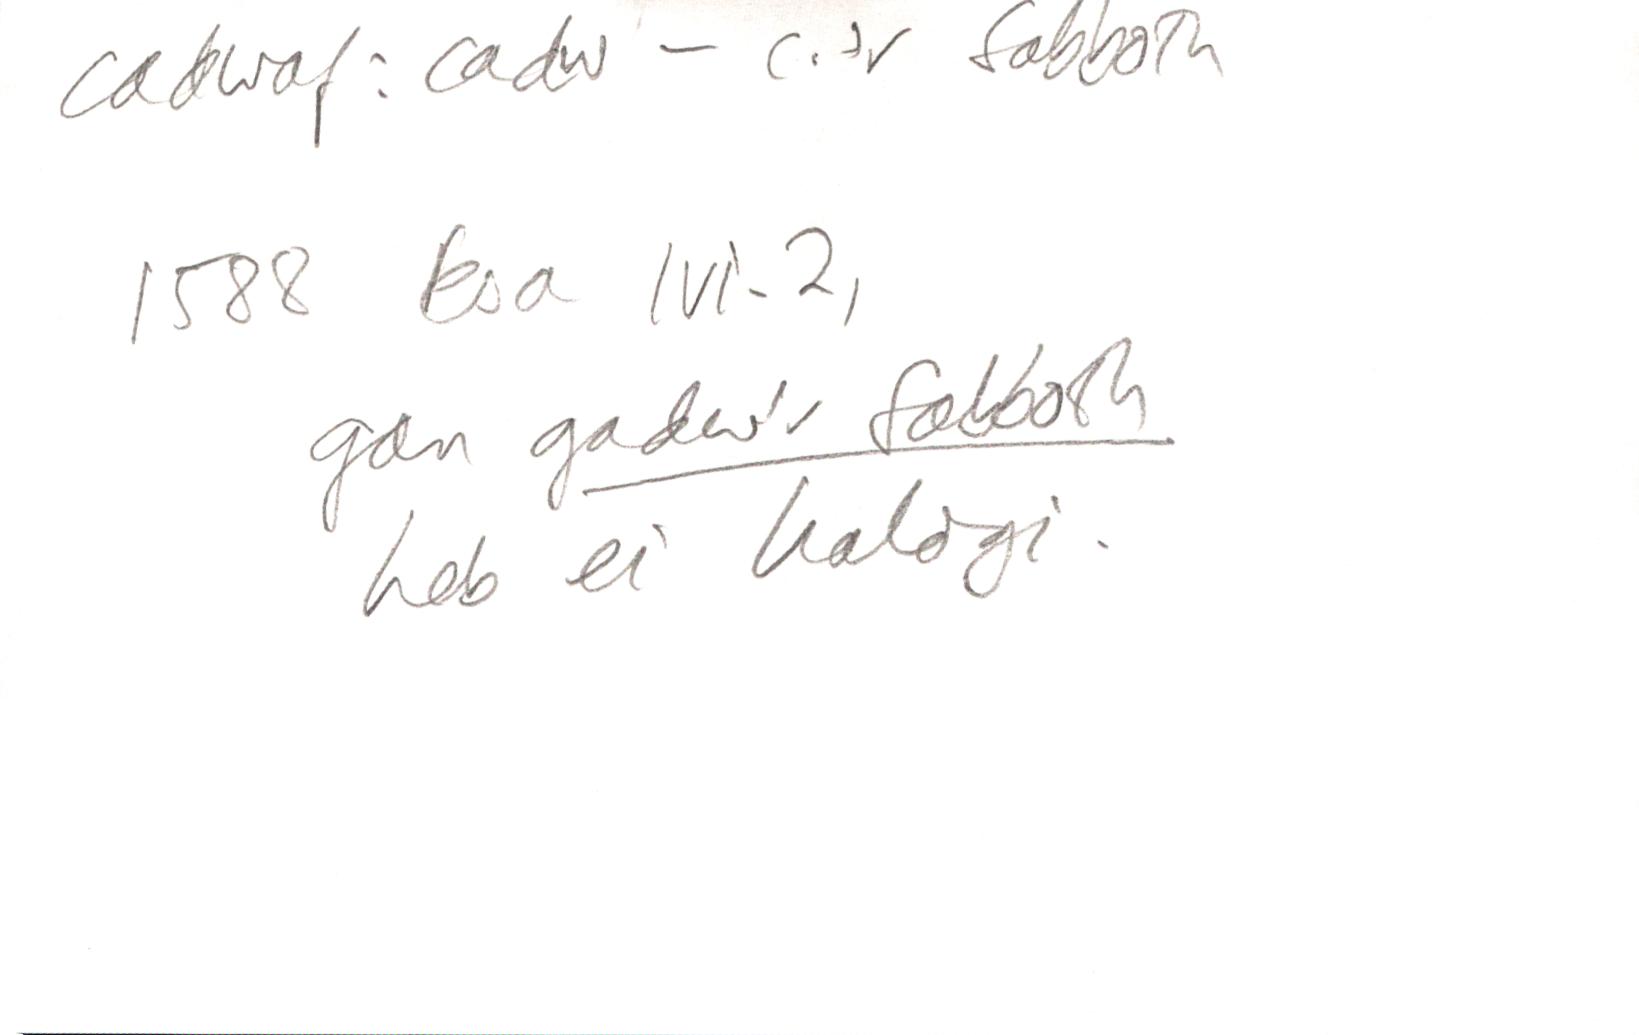 cadwaf: cadw – c.'r Sabboth
1588 Esa lvi. 2,
gan gadw'r Sabboth
heb ei halogi.